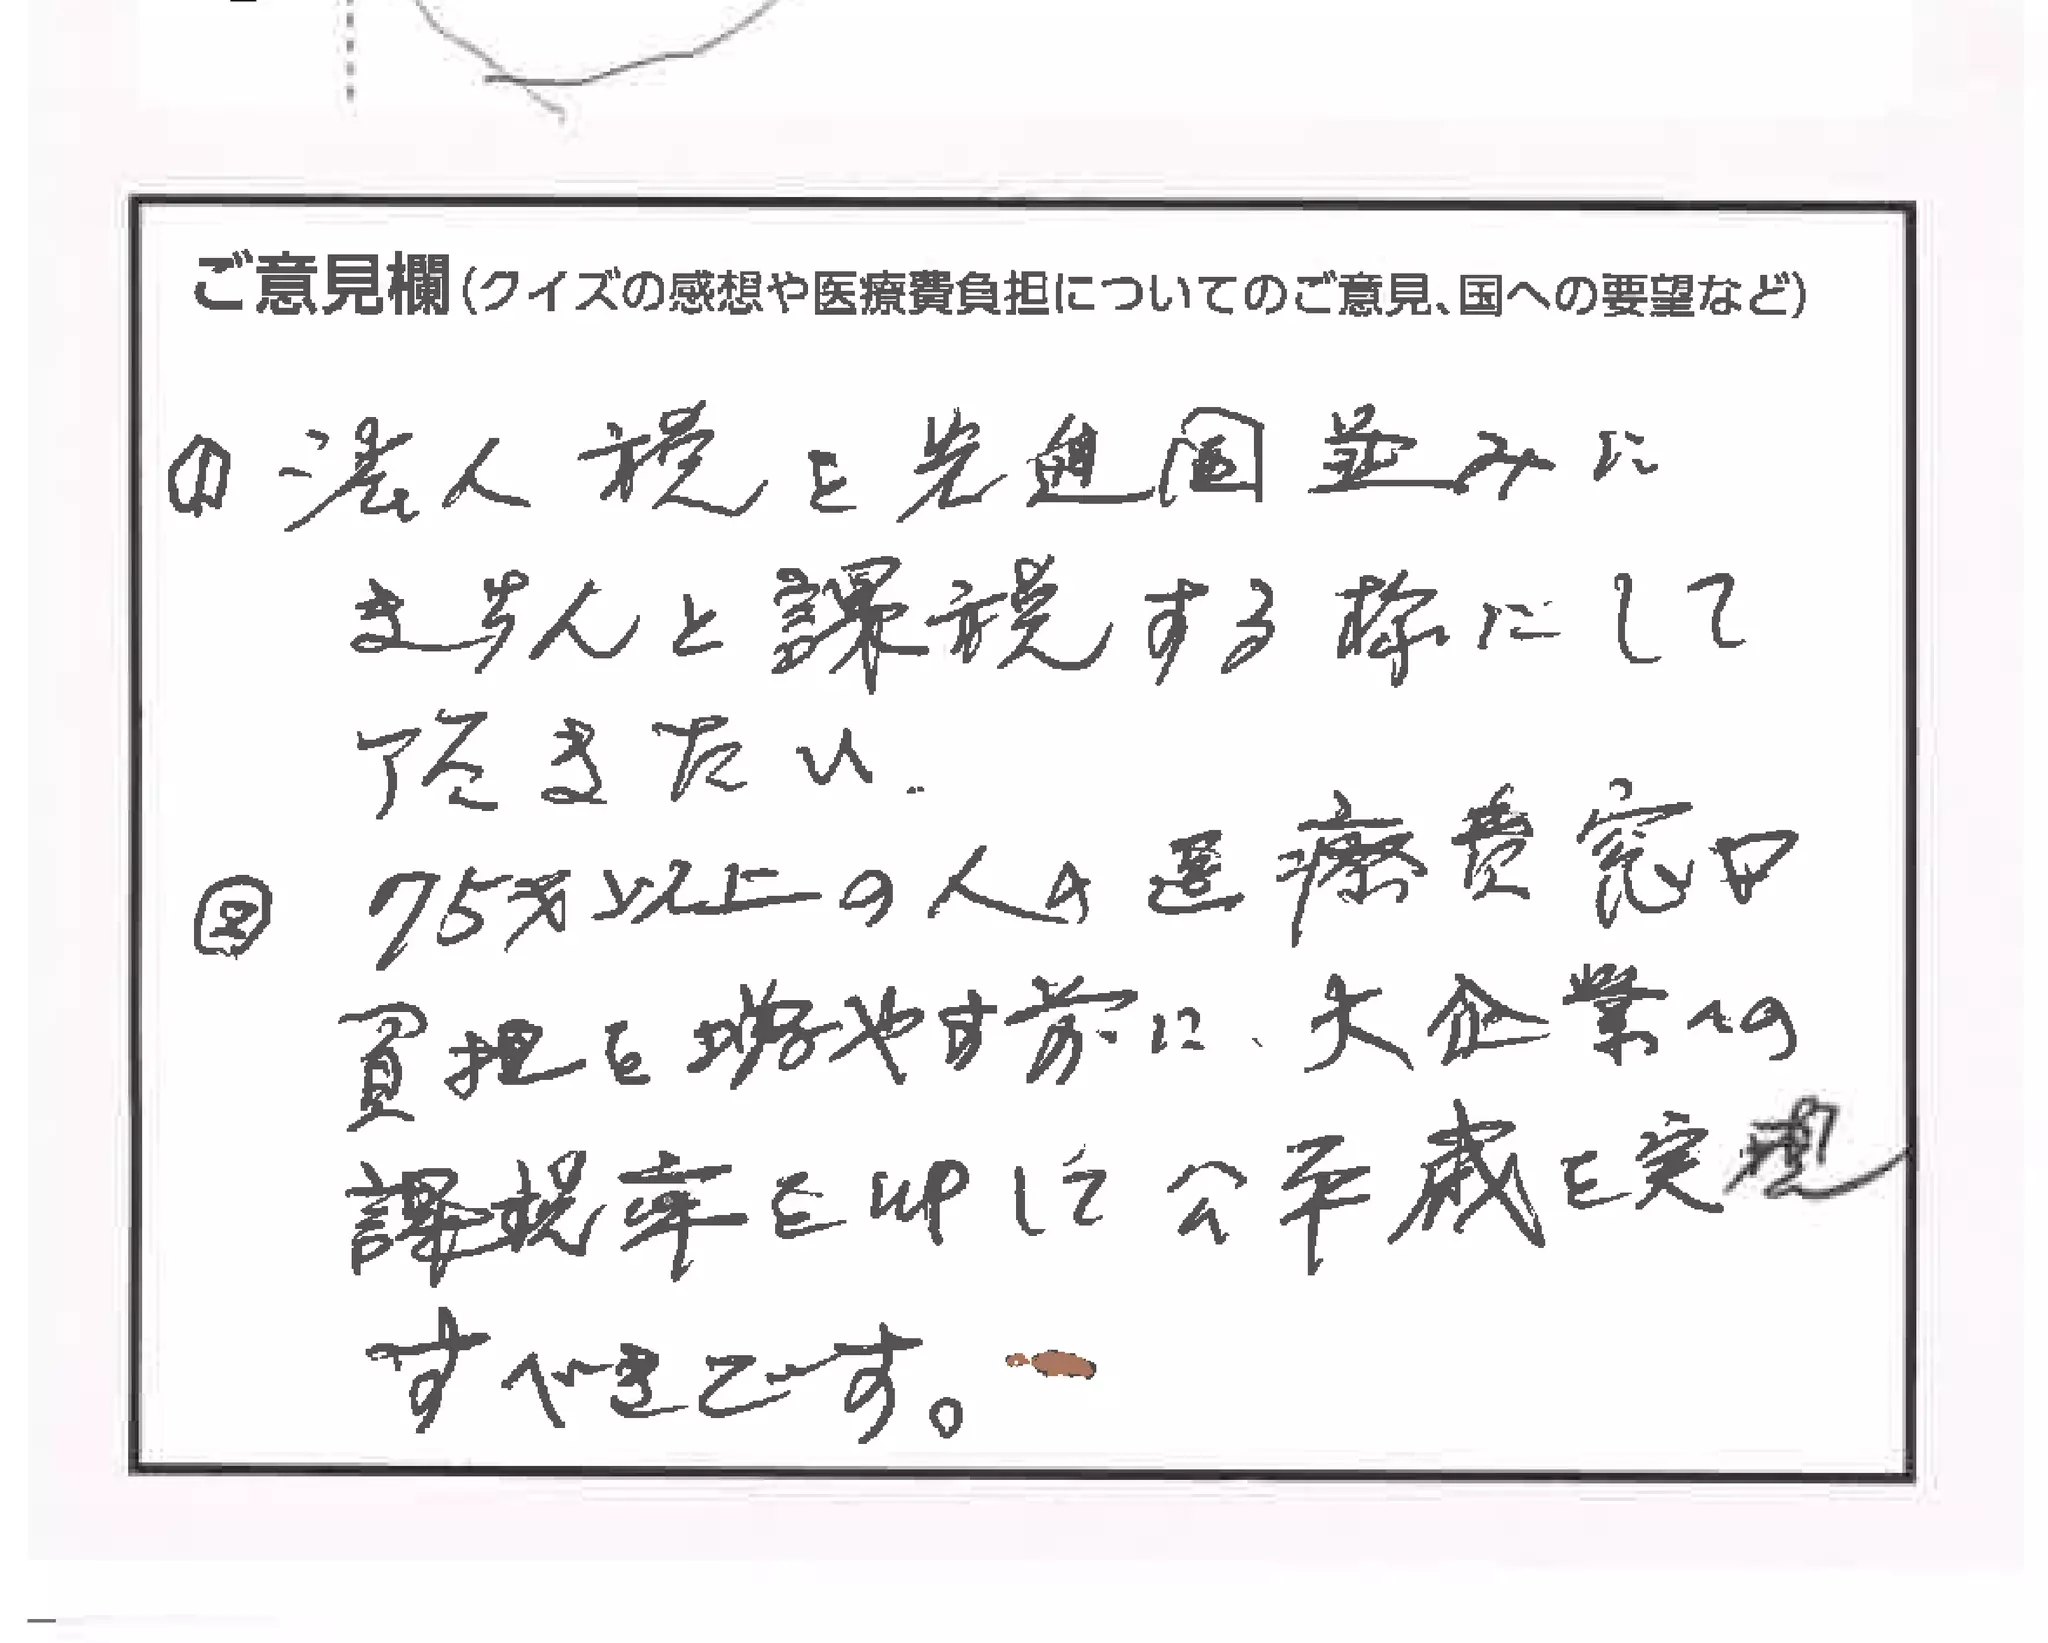 ご意見欄(クイズの感想や医療費負担についてのご意見、国への要望など)
① 法人税を先進国並みに
きちんと課税する様にして
頂きたい.
② 75才以上の人の医療費窓口
負担を増やす前に、大企業への
課税率を UP して公平感を実現
すべきです。